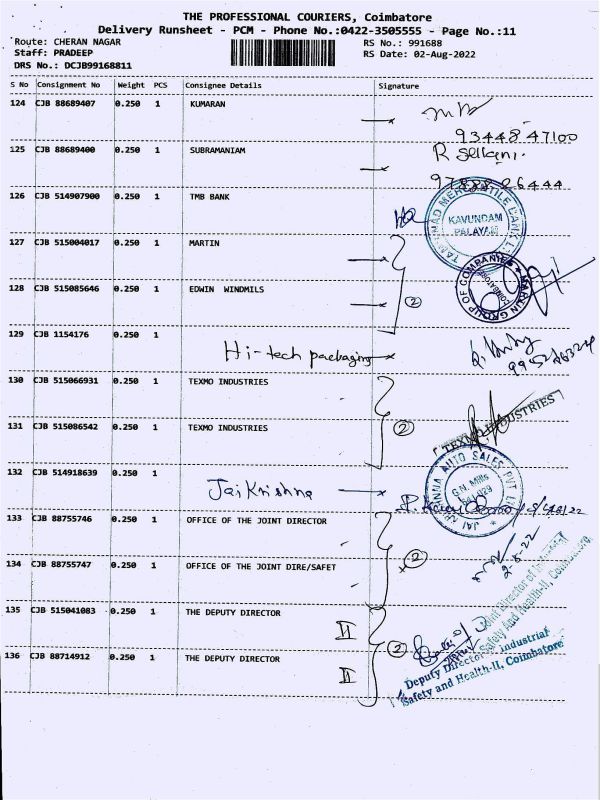 THE PROFESSIONAL COURIERS, Coimbatore
Delivery Runsheet - PCM - Phone No.:0422-3505555 - Page No.:11
Route: CHERAN NAGAR RS No.: 991688
Staff: PRADEEP RS Date: 02-Aug-2022
DRS No.: DCJB99168811
S No Consignment No Weight PCS Consignee Details Signature
124 CJB 88689407 0.250 1 KUMARAN
93448 47100
125 CJB 88689400 0.250 1 SUBRAMANIAM R Sellani.
97888 26444
126 CJB 514907900 0.250 1 TMB BANK
TAMILNAD MERCANTILE BANK LTD
KAVUNDAM
PALAYAM
127 CJB 515004017 0.250 1 MARTIN
128 CJB 515085646 0.250 1 EDWIN WINDMILS 2
MARTIN GROUP OF COMPANIES
COIMBATORE
129 CJB 1154176 0.250 1
Hi-tech packaging
130 CJB 515066931 0.250 1 TEXMO INDUSTRIES
131 CJB 515086542 0.250 1 TEXMO INDUSTRIES 2
TEXMO INDUSTRIES
132 CJB 514918639 0.250 1
Jai Krishna
JAI KRISHNA AUTO SALES PVT LTD
G.N. Mills
133 CJB 88755746 0.250 1 OFFICE OF THE JOINT DIRECTOR
134 CJB 88755747 0.250 1 OFFICE OF THE JOINT DIRE/SAFET 2
2-8-22
Joint Director of Industrial
Safety And Health-II, Coimbatore
135 CJB 515041083 0.250 1 THE DEPUTY DIRECTOR
II 2
136 CJB 88714912 0.250 1 THE DEPUTY DIRECTOR
II
Deputy Director Industrial
Safety and Health-II, Coimbatore